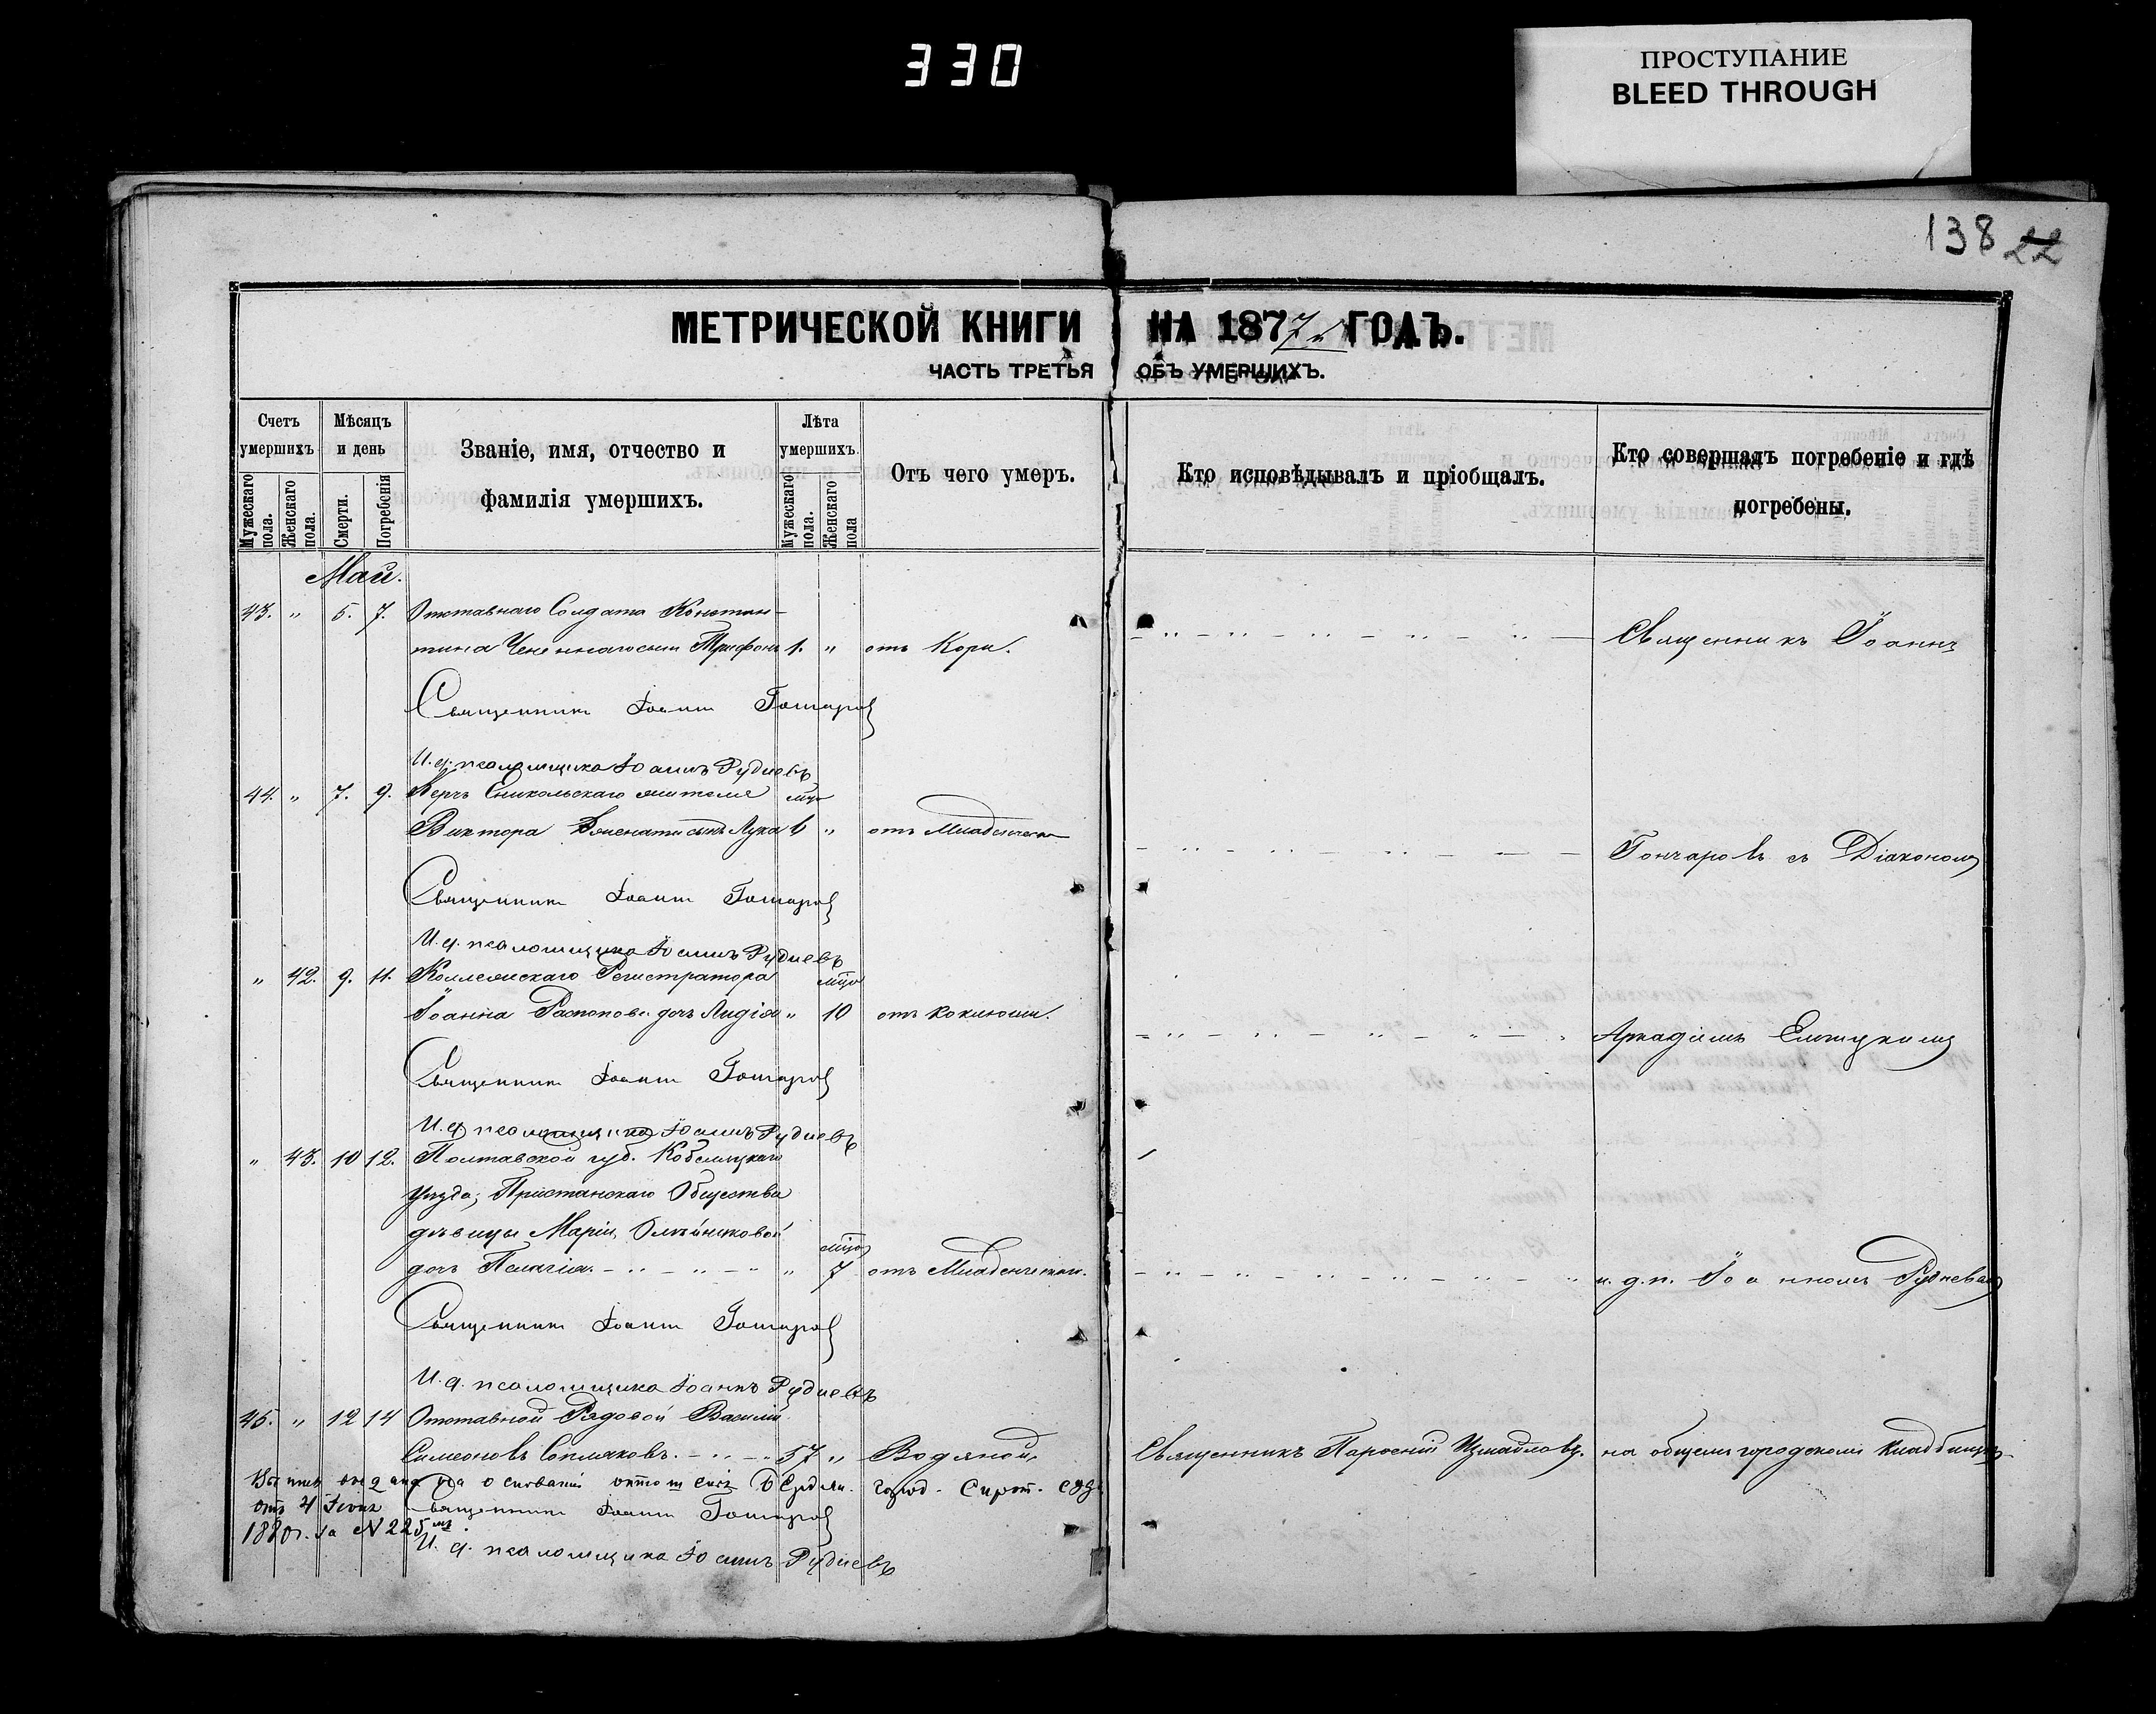 330
ПРОСТУПАНИЕ
BLEED THROUGH
138 22
МЕТРИЧЕСКОЙ КНИГИ НА 1877й ГОДЪ.
ЧАСТЬ ТРЕТЬЯ ОБЪ УМЕРШИХЪ.
Счетъ умершихъ
Мужескаго пола.
Женскаго пола.
Мѣсяцъ и день
Смерти.
Погребенія
Званіе, имя, отчество и
фамилія умершихъ.
Лѣта умершихъ.
Мужескаго пола.
Женскаго пола
Отъ чего умеръ.
Кто исповѣдывалъ и пріобщалъ.
Кто совершалъ погребеніе и гдѣ
погребены.
Май.
43. " 5. 7. Отставнаго Солдата Констан-
тина сынъ Трифонъ 1. " отъ Кори. Священникъ Іоаннъ
Священникъ Іоаннъ Гончаровъ
И. д. псаломщика Іоаннъ Рудневъ
44. " 7. 9. Керчь Еникольскаго жителя мѣс
Виктора сынъ Лука 6 " отъ Младенческой Гончаровъ съ Діакономъ
Священникъ Іоаннъ Гончаровъ
И. д. псаломщика Іоаннъ Рудневъ
" 42. 9. 11. Коллежскаго Регистратора мѣс
Іоанна дочь Лидія " 10 отъ коклюша. Аркадіемъ
Священникъ Іоаннъ Гончаровъ
И. д. псаломщика Іоаннъ Рудневъ
" 43. 10 12. Полтавской губ. Кобеляцкаго
уѣзда, Пристанскаго Общества
дѣвицы Маріи Олейниковой мѣс
дочь Пелагія. " 7 отъ Младенческой. и. д. п. Іоанномъ Рудневымъ
Священникъ Іоаннъ Гончаровъ
И. д. псаломщика Іоаннъ Рудневъ
45. " 12 14 Отставной Рядовой Василій
Симеоновъ Сопляковъ. 57 " Водяной. Священникъ Парѳеній Измайловъ. на общемъ городскомъ кладбищѣ
на основаніи город. Сирот. суд.
отъ 4 Іюня Священникъ Іоаннъ Гончаровъ
1880 г. за N 225мъ.
И. д. псаломщика Іоаннъ Рудневъ